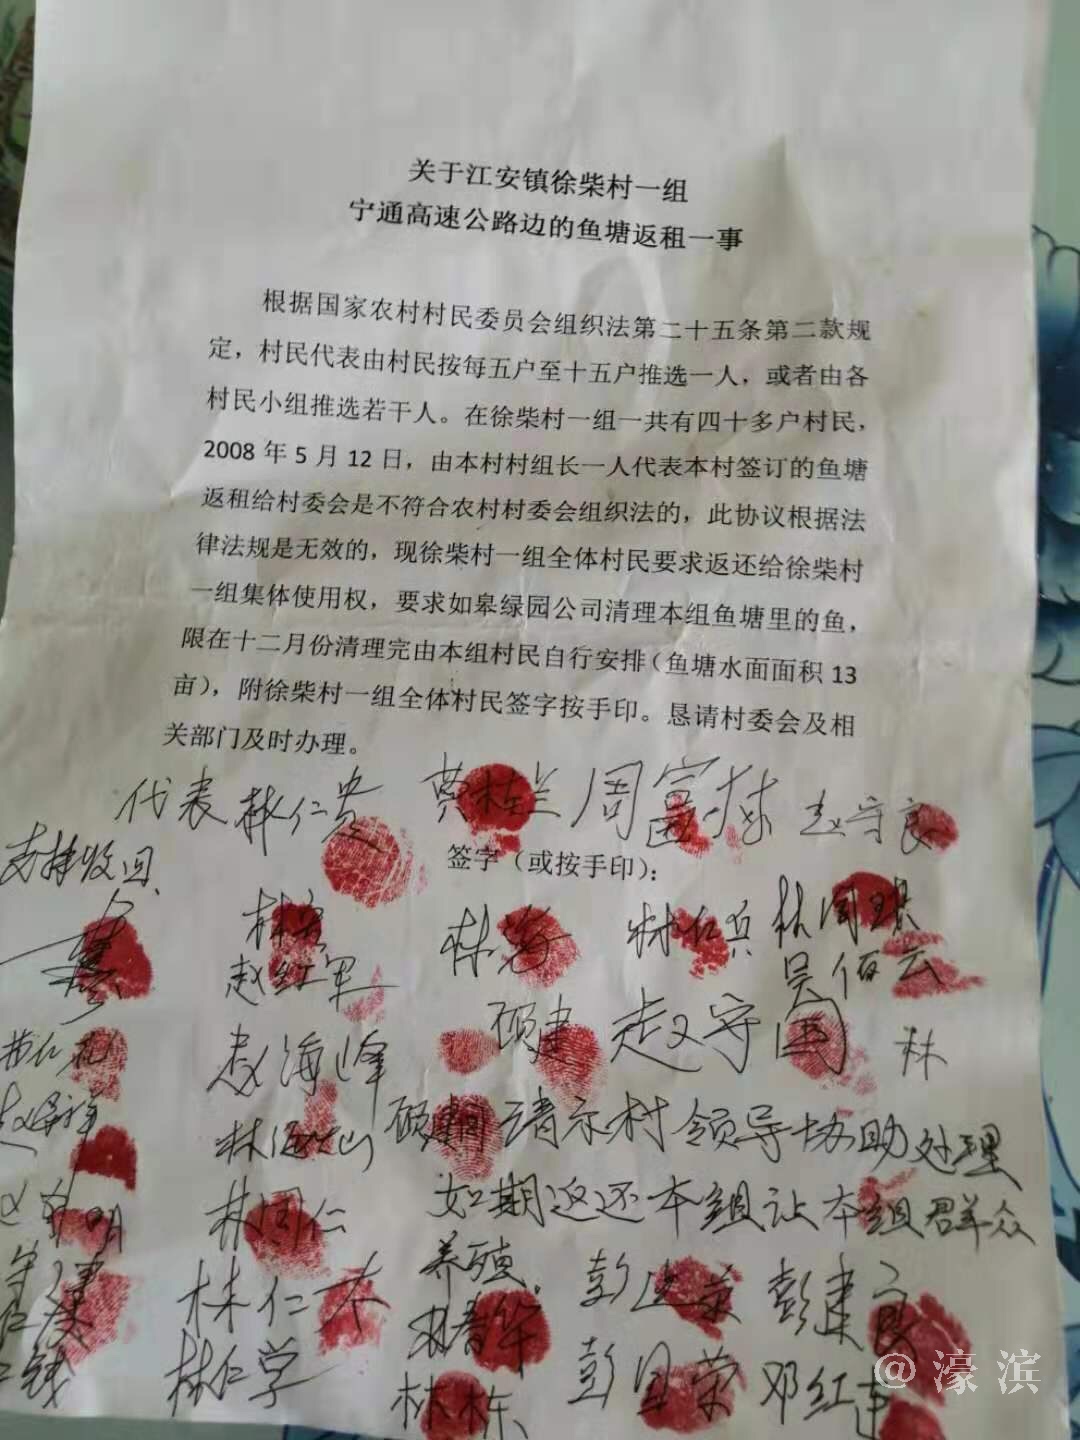 关于江安镇徐柴村一组
宁通高速公路边的鱼塘返租一事
根据国家农村村民委员会组织法第二十五条第二款规
定，村民代表由村民按每五户至十五户推选一人，或者由各
村民小组推选若干人。在徐柴村一组一共有四十多户村民，
2008年5月12日，由本村村组长一人代表本村签订的鱼塘
返租给村委会是不符合农村村委会组织法的，此协议根据法
律法规是无效的，现徐柴村一组全体村民要求返还给徐柴村
一组集体使用权，要求如皋绿园公司清理本组鱼塘里的鱼，
限在十二月份清理完由本组村民自行安排（鱼塘水面面积13
亩），附徐柴村一组全体村民签字按手印。恳请村委会及相
关部门及时办理。
代表 林仁贵 黄桂兰 周富栋 赵守良
支持收回
签字（或按手印）：
林海 林仁兵 林国琪
赵红军 吴佰云
顾建 赵守国 林
海峰
请示村领导协助处理
林国仁 如期返还本组让本组群众
养殖。
林仁本 彭建良
林仁学 林栋 邓红连
@濠滨